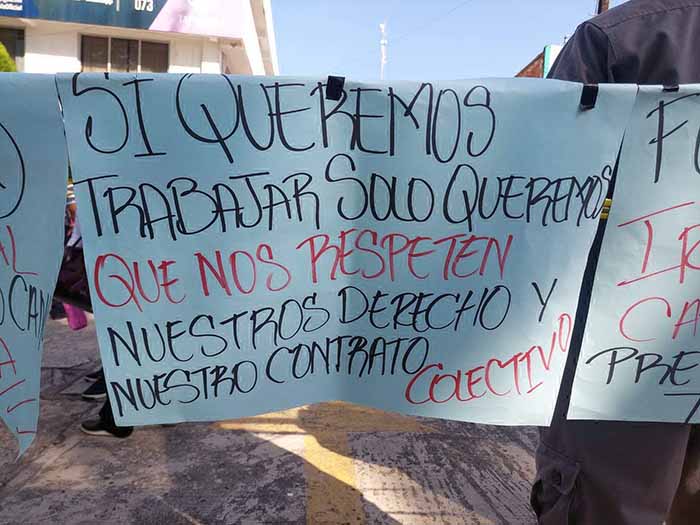 073
SI QUEREMOS
TRABAJAR SOLO QUEREMOS
QUE NOS RESPETEN
NUESTROS DERECHO Y
NUESTRO CONTRATO
COLECTIVO